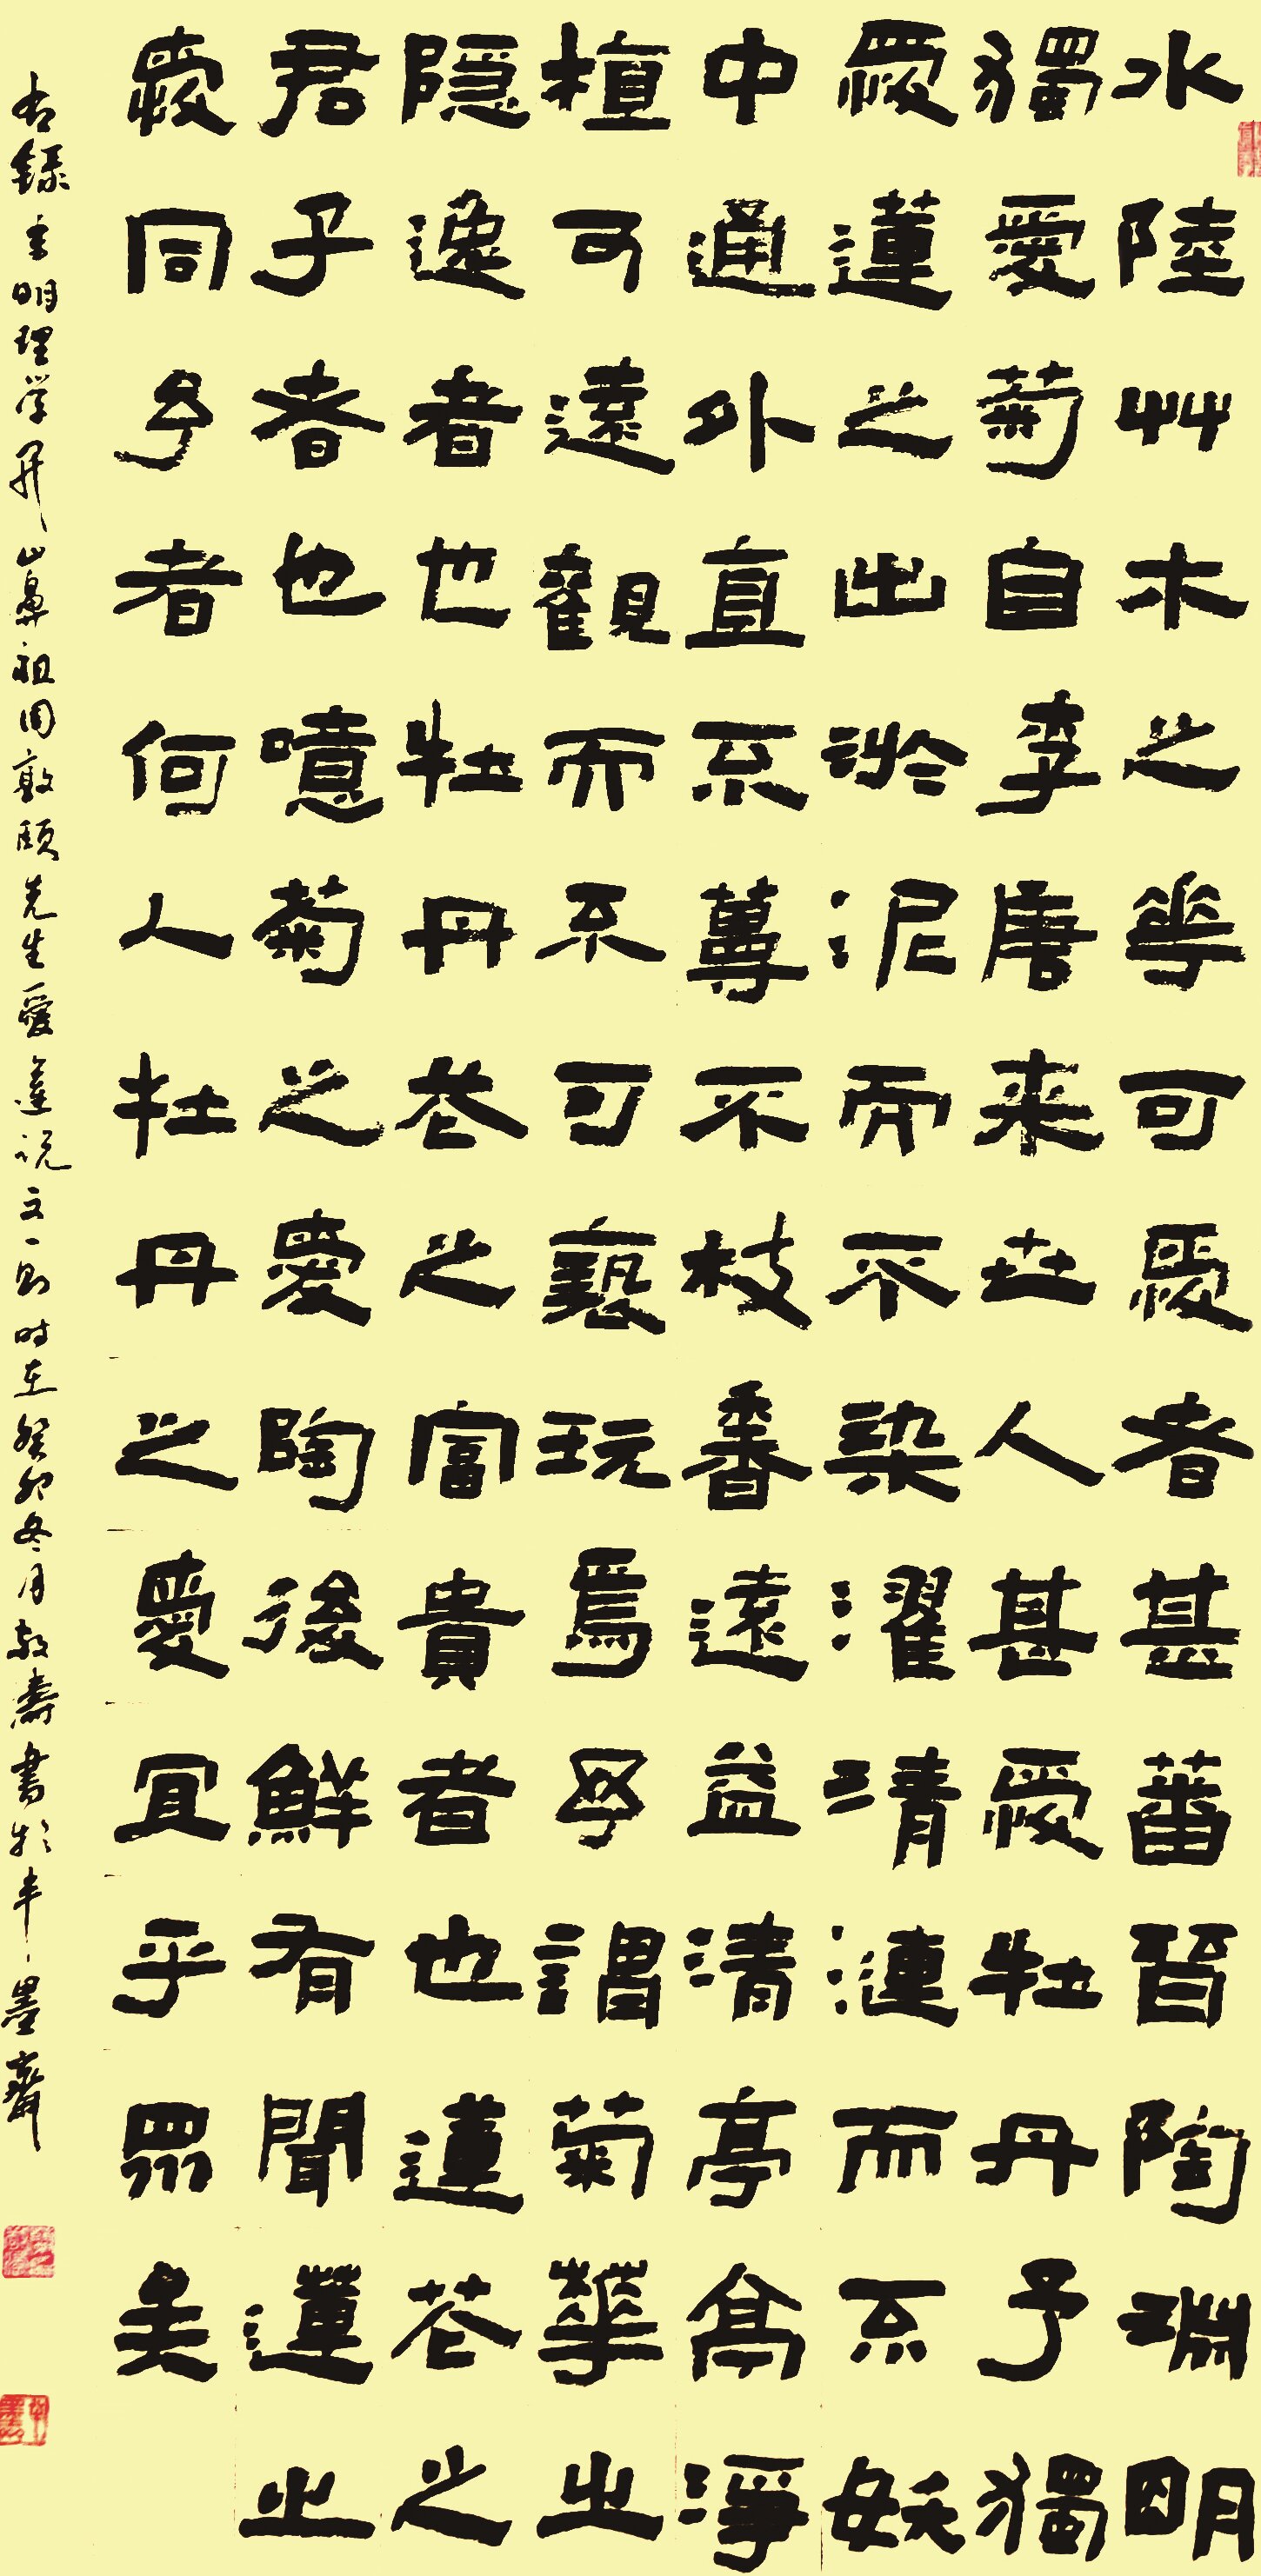 水陸艸木之華可愛者甚蕃晉陶淵明
獨愛菊自李唐來世人甚愛牡丹予獨
愛蓮之出淤泥而不染濯清漣而不妖
中通外直不蔓不枝香遠益清亭高淨
植可遠觀而不可褻玩焉予謂菊華之
隱逸者也牡丹花之富貴者也蓮花之
君子者也噫菊之愛陶後鮮有聞蓮之
愛同予者何人牡丹之愛宜乎眾矣
右錄宋明理学开山鼻祖周敦頤先生愛蓮说文一則时在癸卯冬月敬濤書於半墨齋